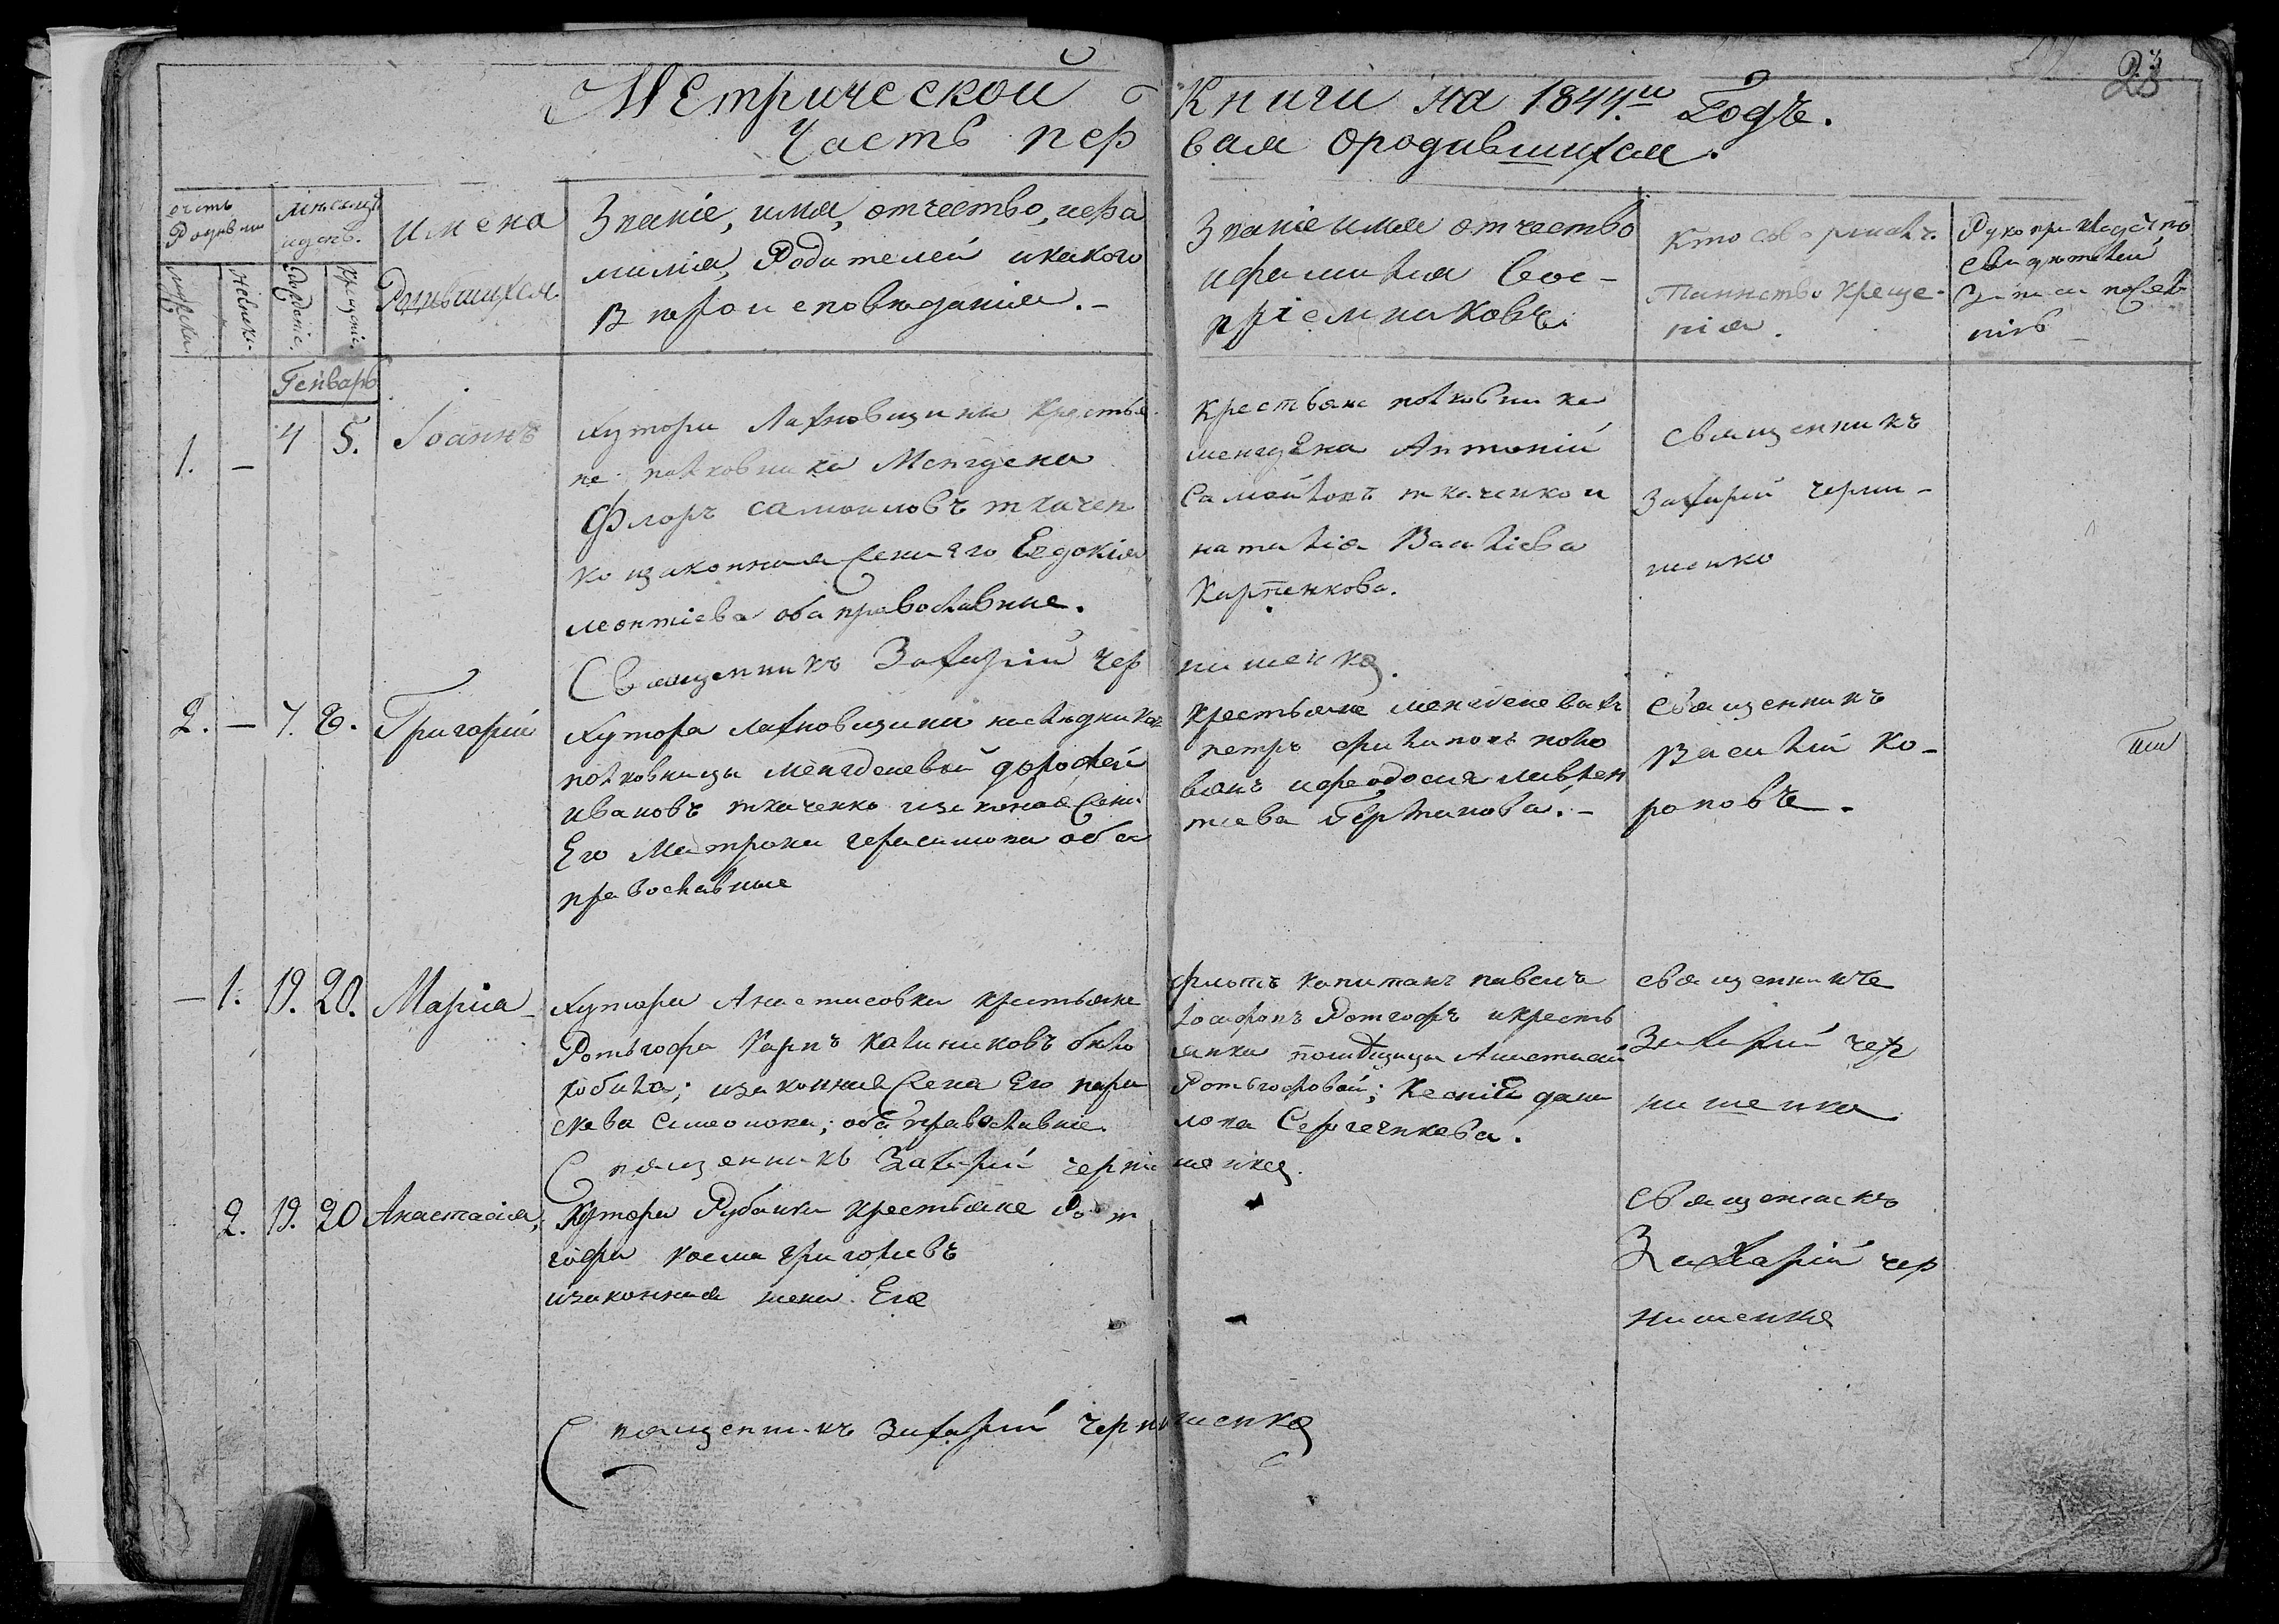 23
Метрической Книги на 1844й Годъ.
Часть первая ородившихся.
счетъ Родивши
мужеска
женска
мѣсяцъ идень.
Рожденіе.
крещеніе.
имена Родившихся
Званіе, имя, отчество, ифа
милія, Родителей икакого
вѣроисповѣданія. –
Званіе имя отчество
ифамилія вос-
пріемниковъ.
Кто совершалъ
таинство креще-
нія.
Рукоприкладство
свидѣтелей
Генварь
1. – 4 5. Іоаннъ
Хутора Лахновщины Крестья
не полковника Менгдена
Флоръ самоиловъ ткачен
ко изаконная жена его Евдокія
леонтіева оба православные.
Крестьяне полковника
менгдена Антоній
Самойловъ ткаченко и
наталія Василіева
Карпенкова.
священникъ
Захарій черни-
шенко
Священникъ Захарій Чернишенко.
2. – 7. 8. Григорій
Хутора лахновщины наслѣдника
полковницы менгденевой дорофей
ивановъ ткаченко изаконая жена
Его Матрона герасимова оба
православные
Крестьяне менгденевой
петръ филиповъ поло
вянъ ифеодосія лаврен
тиева Гержанова. –
священникъ
Василій Ко-
роповъ.
– 1. 19. 20. Марія
Хутора Анастасовки крестьяне
Ротьгофа Карпъ Калиниковъ бѣло
кобила; изаконная жена Его пара
скева симеонова; оба православніе.
флотъ капитанъ павелъ
Іоасфовъ Ротгофъ икресть
янка помѣщицы Анастасіи
Ротьгофовой; Ксенія дани
лова Сергіенкова.
священникъ
Захарій чер
нишенко
Священникъ Захарій чернишенко.
2. 19. 20 Анастасія,
Хутора Рубанки крестьяне Рот
гофа косма григориевъ
изаконная жена Его
священникъ
Захарій чер
нишенко
Священникъ Захарій чернишенко